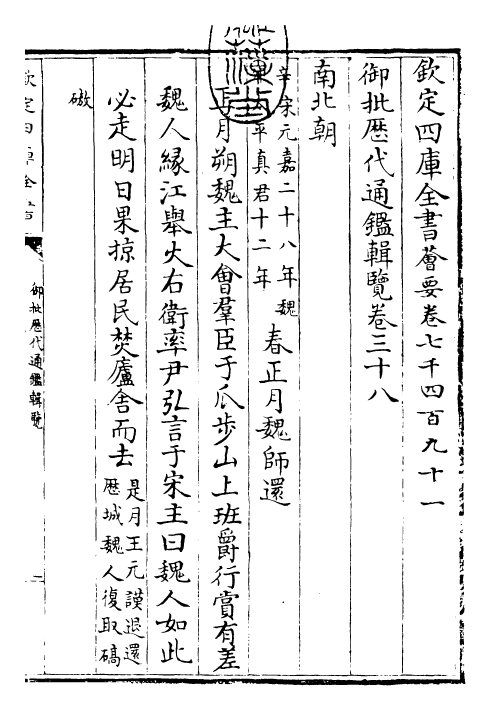 欽定四庫全書薈要卷七千四百九十一
御批歴代通鑑輯覽卷三十八
南北朝
辛 宋元嘉二十八年魏
平真君十二年
春正月魏師還
正月朔魏主大會羣臣于瓜步山上班爵行賞有差
魏人緣江舉火右衛率尹弘言于宋主曰魏人如此
必走明日果掠居民焚廬舍而去
是月王元謨退還
歴城魏人復取碻
磝
欽定四庫全書
御批歴代通鑑輯覽
一